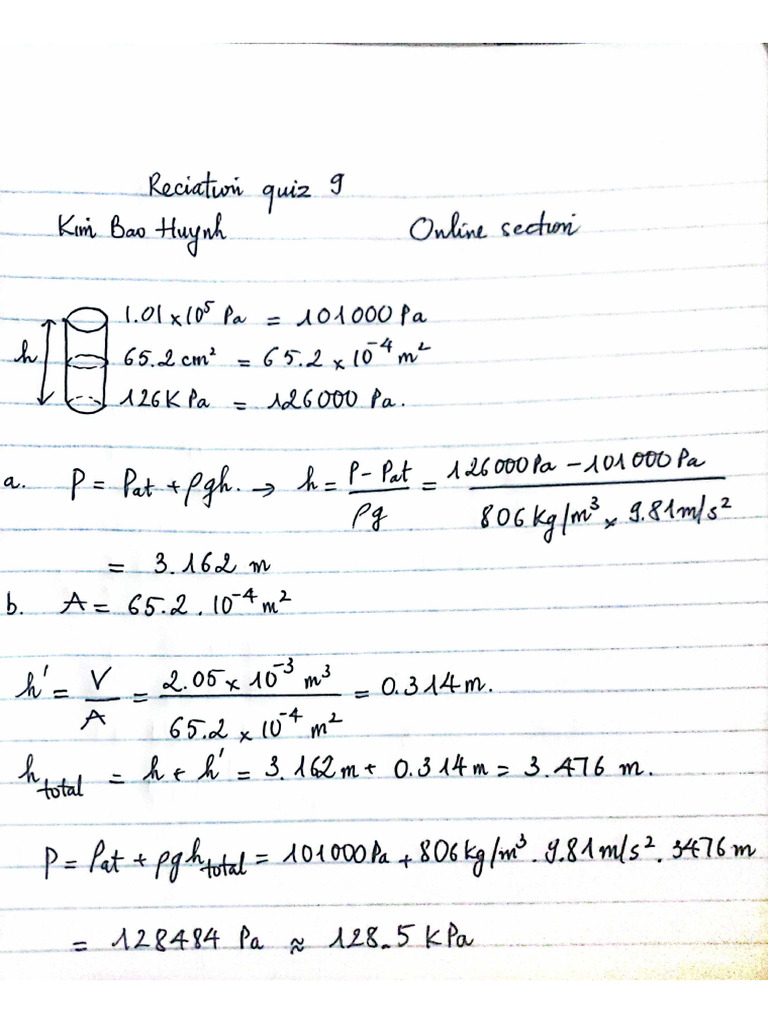 Reciation quiz 9
Kim Bao Huynh Online section
1.01 × 10⁵ Pa = 101000 Pa
h 65.2 cm² = 65.2 × 10⁻⁴ m²
126K Pa = 126000 Pa.
a. P = Pat + ρgh. → h = (P - Pat)/(ρg) = (126000 Pa - 101000 Pa)/(806 kg/m³ × 9.81 m/s²)
= 3.162 m
b. A = 65.2 . 10⁻⁴ m²
h' = V/A = (2.05 × 10⁻³ m³)/(65.2 × 10⁻⁴ m²) = 0.314 m.
h total = h + h' = 3.162 m + 0.314 m = 3.476 m.
P = Pat + ρgh total = 101000 Pa + 806 kg/m³ . 9.81 m/s² . 3476 m
= 128484 Pa ≈ 128.5 KPa